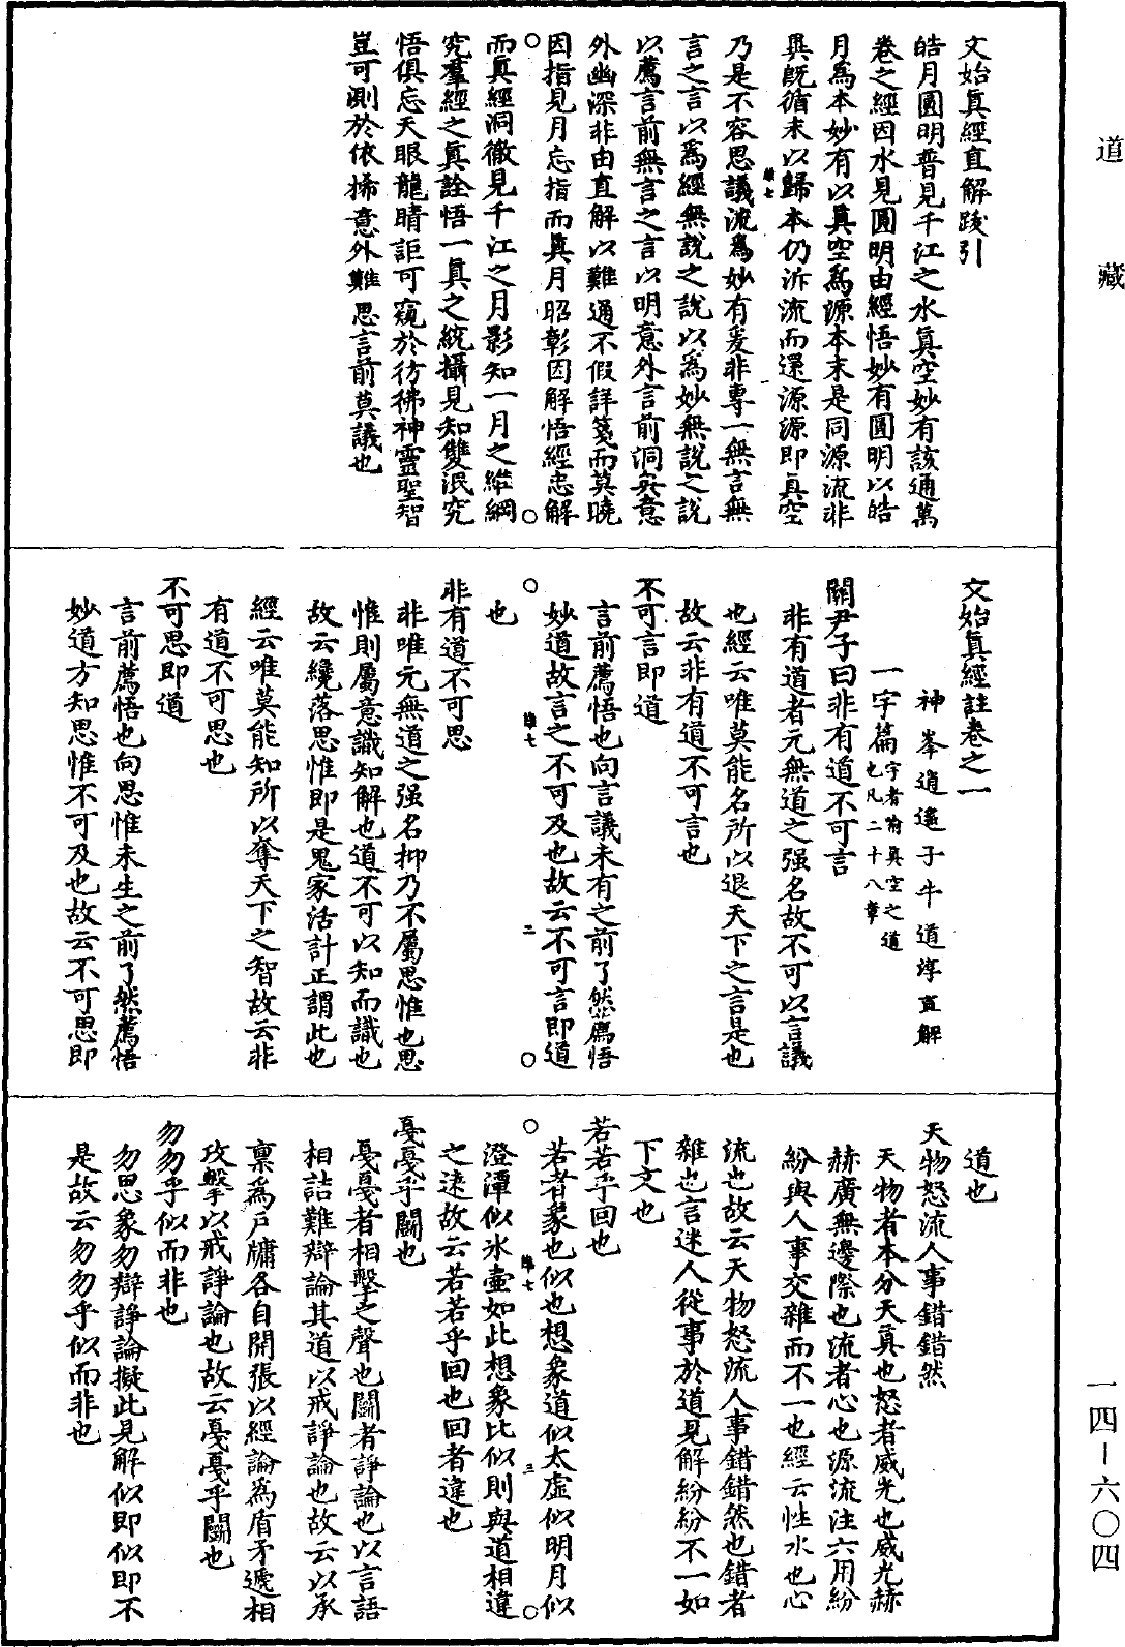 道藏
文始真經直解跋引
皓月圓明普見千江之水真空妙有該通萬
卷之經因水見圓明由經悟妙有圓明以皓
月為本妙有以真空為源本末是同源流非
異旣循末以歸本仍泝流而還源源即真空
乃是不容思議流為妙有爰非專一無言無
言之言以為經無說之說以為妙無說之說
以薦言前無言之言以明意外言前洞矣意
外幽深非由直解以難通不假詳箋而莫曉
因指見月忘指而真月昭彰因解悟經忘解
而真經洞徹見千江之月影知一月之緫綱
究羣經之真詮悟一真之統攝見知雙泯究
悟俱忘天眼龍睛詎可窺於彷彿神靈聖智
豈可測於依俙意外難思言前莫議也
文始真經註卷之一
神峯逍遙子牛道淳直解
一宇篇宇者喻真空之道也凡二十八章
關尹子曰非有道不可言
非有道者元無道之强名故不可以言議
也經云唯莫能名所以退天下之言是也
故云非有道不可言也
不可言即道
言前薦悟也向言議未有之前了然薦悟
妙道故言之不可及也故云不可言即道
也
非有道不可思
非唯元無道之强名抑乃不屬思惟也思
惟則屬意識知解也道不可以知而識也
故云纔落思惟即是鬼家活計正謂此也
經云唯莫能知所以奪天下之智故云非
有道不可思也
不可思即道
言前薦悟也向思惟未生之前了然薦悟
妙道方知思惟不可及也故云不可思即
道也
天物怒流人事錯錯然
天物者本分天真也怒者威光也威光赫
赫廣無邊際也流者心也源流注六用紛
紛與人事交雜而不一也經云性水也心
流也故云天物怒流人事錯錯然也錯者
雜也言迷人從事於道見解紛紛不一如
下文也
若若乎回也
若者象也似也想象道似太虛似明月似
澄潭似氷壺如此想象比似則與道相違
之遠故云若若乎回也回者違也
戞戞乎鬬也
戞戞者相擊之聲也鬬者諍論也以言語
相詰難辯論其道以戒諍論也故云以承
稟為戶牖各自開張以經論為盾矛遞相
攻擊以戒諍論也故云戞戞乎鬬也
勿勿乎似而非也
勿思象勿辯諍論擬此見解似即似即不
是故云勿勿乎似而非也
一四－六〇四